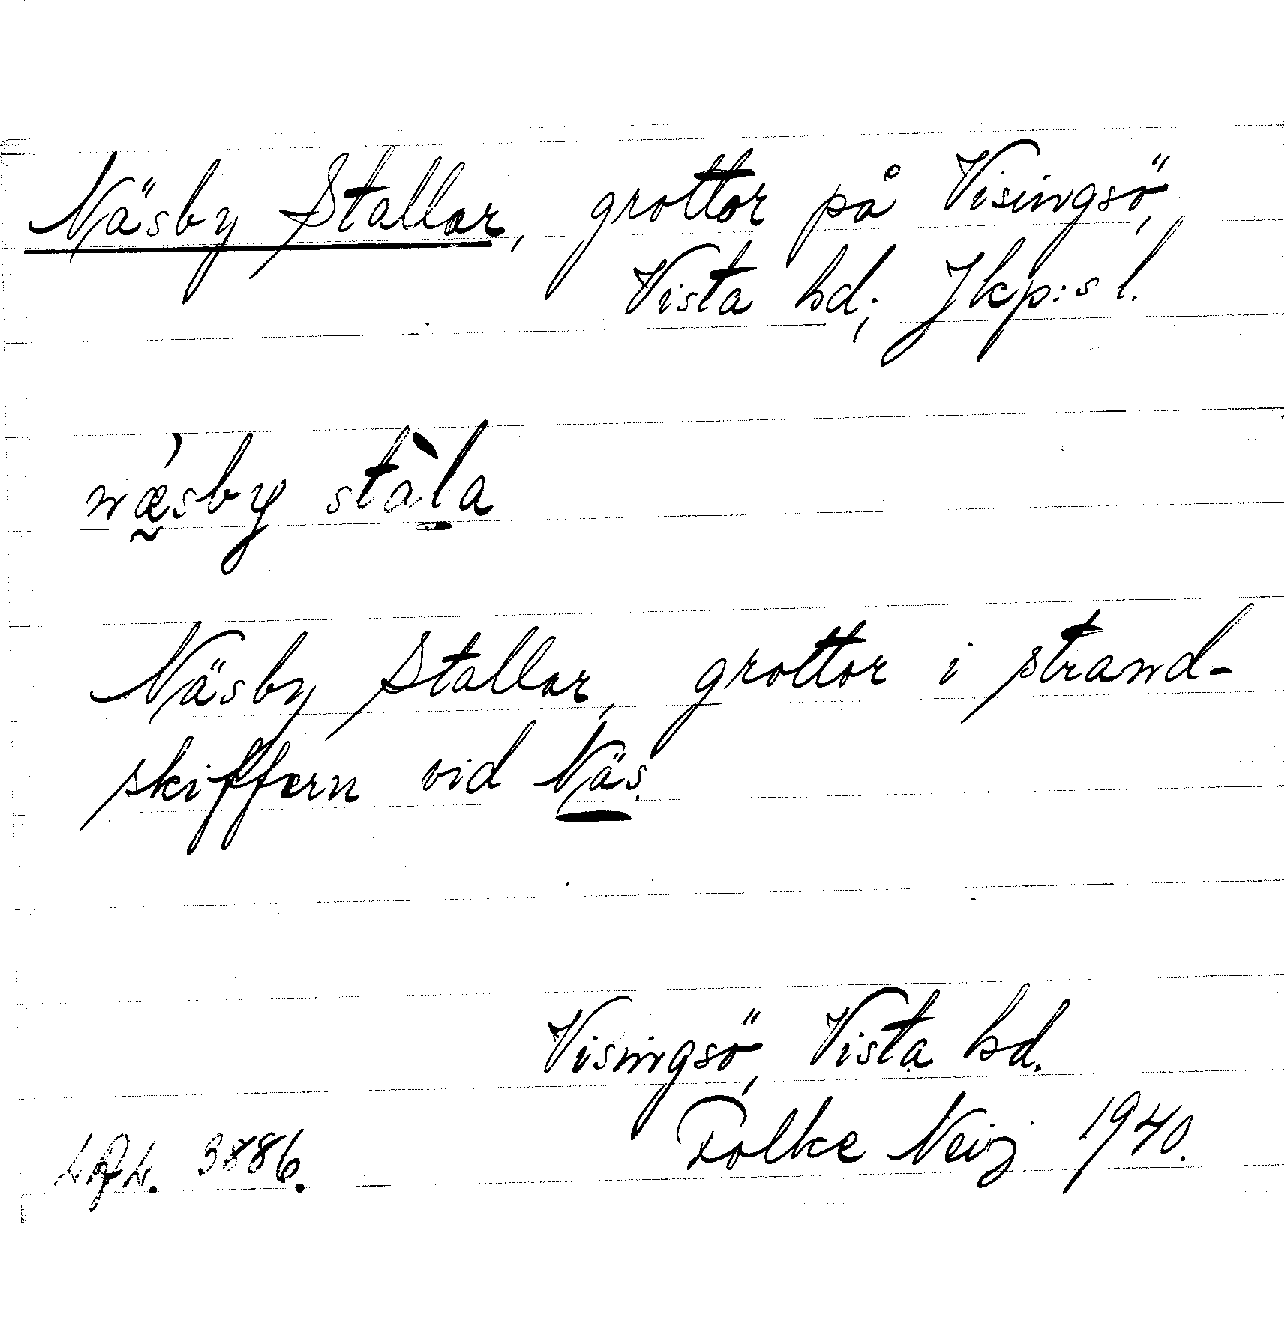 Näsby Stallar, grottor på Visingsö,
Vista hd; Jkp:s l.
nǽ̰sby stàl̲a
Näsby Stallar, grottor i strand-
skiffern vid Näs.
Visingsö, Vista hd.
Folke Neij 1940.
3886.